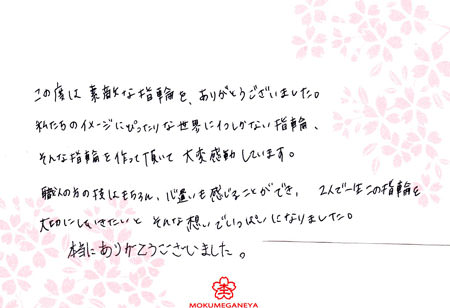 この度は素敵な指輪を、ありがとうございました。
私たちのイメージにぴったりな世界に1つしかない指輪、
そんな指輪を作って頂いて大変感動しています。
職人の方の技はもちろん、心遣いも感じることができ、2人で一生この指輪を
大切にしていきたいとそんな想いでいっぱいになりました。
本当にありがとうございました。
MOKUMEGANEYA